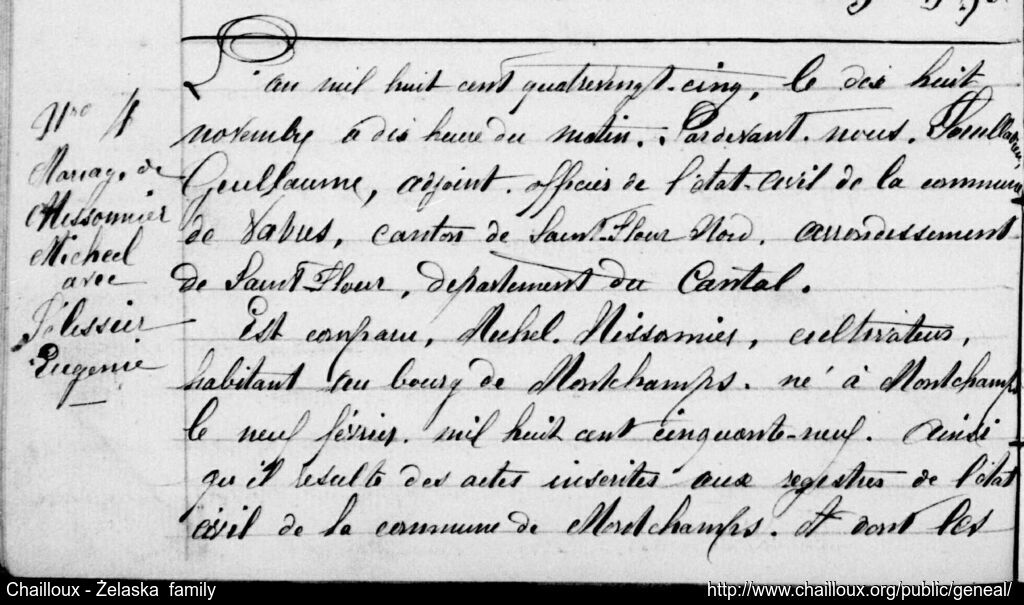 Nro 4
Mariage de
Missonnier
Micheel
avec
Pélissier
Eugenie
L'an mil huit cent quatrevingt-cinq, le dix huit
novembre à dix heure du matin. Pardevant nous.
Guillaume, adjoint officier de l'état-civil de la commune
de Vabres, canton de Saint-Flour Nord, arrondissement
de Saint-Flour, departement du Cantal.
Est comparu, Michel Missonnier, cultivateur,
habitant au bourg de Montchamps. né à Montchamps
le neuf février mil huit cent cinquante-neuf. Ainsi
qu'il resulte des actes inscrites aux registres de l'état
civil de la commune de Montchamps. et dont les
Chailloux - Żelaska family
http://www.chailloux.org/public/geneal/